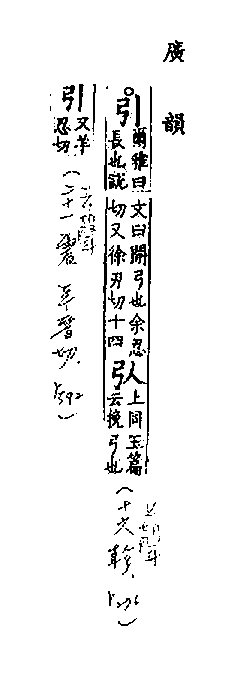 廣韻
引
爾雅曰
長也說
文曰開弓也余忍
切又徐刃切十四
上同玉篇
云挽弓也
(十六軫.
引
又羊
忍切
(二十一震 羊晉切. P392)